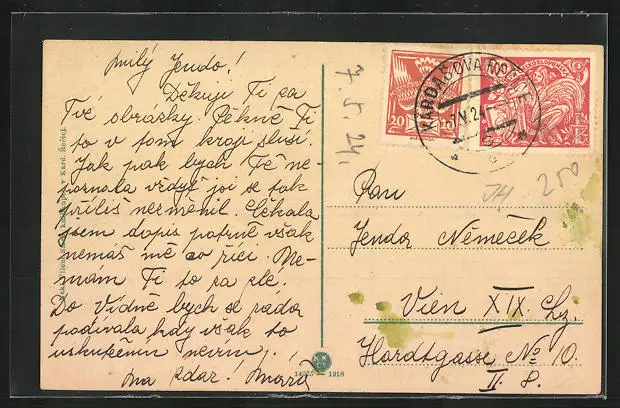 Milý Jendo!
Děkuji Ti za
Tvé obrázky. Pěkně Ti
to v tom kroji sluší.
Jak pak bych Tě ne-
poznala vždyť jsi se tak
příliš nezměnil. Čekala
jsem dopis patrně však
nemáš mě co říci. Ne-
mám Ti to za zlé.
Do Vídně bych se ráda
podívala kdy však to
uskutečním nevím.
Na zdar! Mařa
7. 5. 24.
KARDAŠOVA
V 24
20 20
100
JH
250
Pan
Jenda Němeček
Vien XIX. Lz.
Hardtgasse No 10.
II. 8.
1918